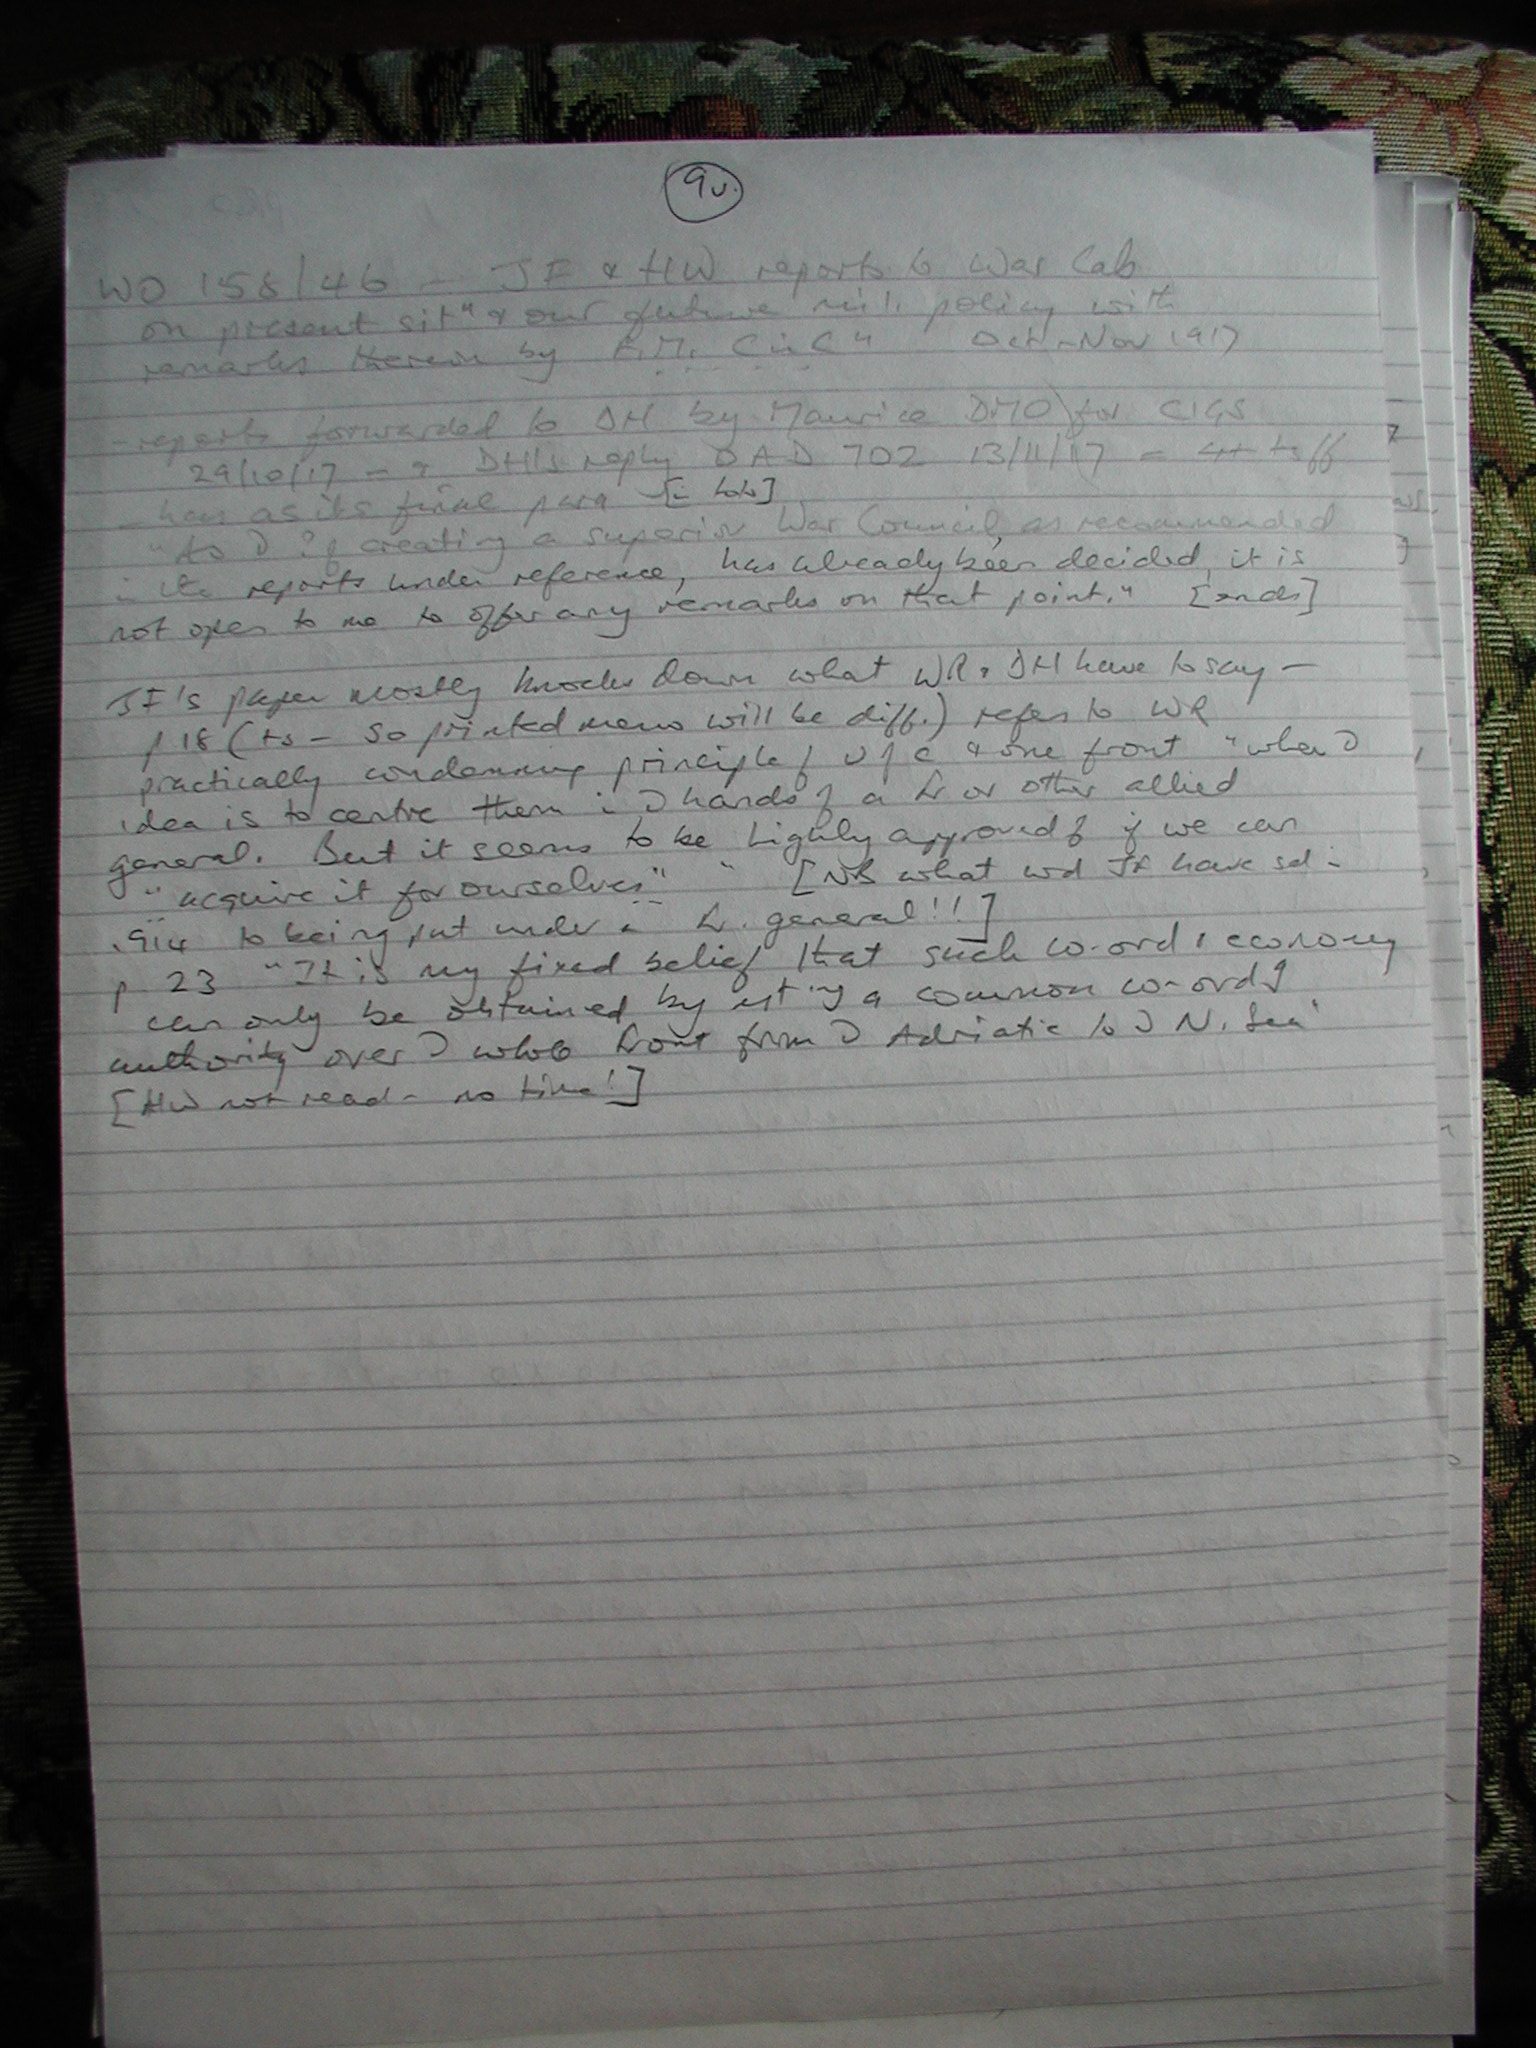 9v.
WO 158/46 - JF & HW reports to War Cab
on present sitn & our future mili policy with
remarks therein by F.M. C in C" Oct-Nov 1917
- reports forwarded to DH by Maurice DMO for CIGS
29/10/17 - & DH's reply OAD 702 13/11/17 = 4+ ts ff
- has as its final para [in toto]
"As D of creating a superior War Council, as recommended
in the reports under reference, has already been decided, it is
not open to me to offer any remarks on that point." [ends]
JF's paper mostly knocks down what WR & DH have to say -
p 18 (ts - so printed memo will be diff.) refers to WR
practically condemning principle of U of C & one front "when D
idea is to centre them in D hands of a Fr or other allied
general. But it seems to be highly approved of if we can
"acquire it for ourselves" " [NB what wd JF have sd in
1914 to being put under a Fr. general!!]
p 23 "It is my fixed belief that such co-ord & economy
can only be obtained by est'ing a common co-ordg
authority over D whole front from D Adriatic to D N. Sea"
[HW not read - no time!]